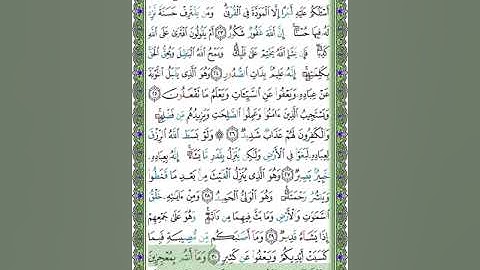 أَسْـَٔلُكُمْ عَلَيْهِ أَجْرًا إِلَّا ٱلْمَوَدَّةَ فِى ٱلْقُرْبَىٰ ۗ وَمَن يَقْتَرِفْ حَسَنَةً نَّزِدْ
لَهُۥ فِيهَا حُسْنًا ۚ إِنَّ ٱللَّهَ غَفُورٌ شَكُورٌ ٢٣ أَمْ يَقُولُونَ ٱفْتَرَىٰ عَلَى ٱللَّهِ
كَذِبًا ۖ فَإِن يَشَإِ ٱللَّهُ يَخْتِمْ عَلَىٰ قَلْبِكَ ۗ وَيَمْحُ ٱللَّهُ ٱلْبَـٰطِلَ وَيُحِقُّ ٱلْحَقَّ
بِكَلِمَـٰتِهِۦٓ ۚ إِنَّهُۥ عَلِيمٌۢ بِذَاتِ ٱلصُّدُورِ ٢٤ وَهُوَ ٱلَّذِى يَقْبَلُ ٱلتَّوْبَةَ
عَنْ عِبَادِهِۦ وَيَعْفُوا۟ عَنِ ٱلسَّيِّـَٔاتِ وَيَعْلَمُ مَا تَفْعَلُونَ ٢٥
وَيَسْتَجِيبُ ٱلَّذِينَ ءَامَنُوا۟ وَعَمِلُوا۟ ٱلصَّـٰلِحَـٰتِ وَيَزِيدُهُم مِّن فَضْلِهِۦ ۚ
وَٱلْكَـٰفِرُونَ لَهُمْ عَذَابٌ شَدِيدٌ ٢٦ ۞ وَلَوْ بَسَطَ ٱللَّهُ ٱلرِّزْقَ
لِعِبَادِهِۦ لَبَغَوْا۟ فِى ٱلْأَرْضِ وَلَـٰكِن يُنَزِّلُ بِقَدَرٍ مَّا يَشَآءُ ۚ إِنَّهُۥ بِعِبَادِهِۦ
خَبِيرٌۢ بَصِيرٌ ٢٧ وَهُوَ ٱلَّذِى يُنَزِّلُ ٱلْغَيْثَ مِنۢ بَعْدِ مَا قَنَطُوا۟
وَيَنشُرُ رَحْمَتَهُۥ ۚ وَهُوَ ٱلْوَلِىُّ ٱلْحَمِيدُ ٢٨ وَمِنْ ءَايَـٰتِهِۦ خَلْقُ
ٱلسَّمَـٰوَٰتِ وَٱلْأَرْضِ وَمَا بَثَّ فِيهِمَا مِن دَآبَّةٍ ۚ وَهُوَ عَلَىٰ جَمْعِهِمْ
إِذَا يَشَآءُ قَدِيرٌ ٢٩ وَمَآ أَصَـٰبَكُم مِّن مُّصِيبَةٍ فَبِمَا
كَسَبَتْ أَيْدِيكُمْ وَيَعْفُوا۟ عَن كَثِيرٍ ٣٠ وَمَآ أَنتُم بِمُعْجِزِينَ